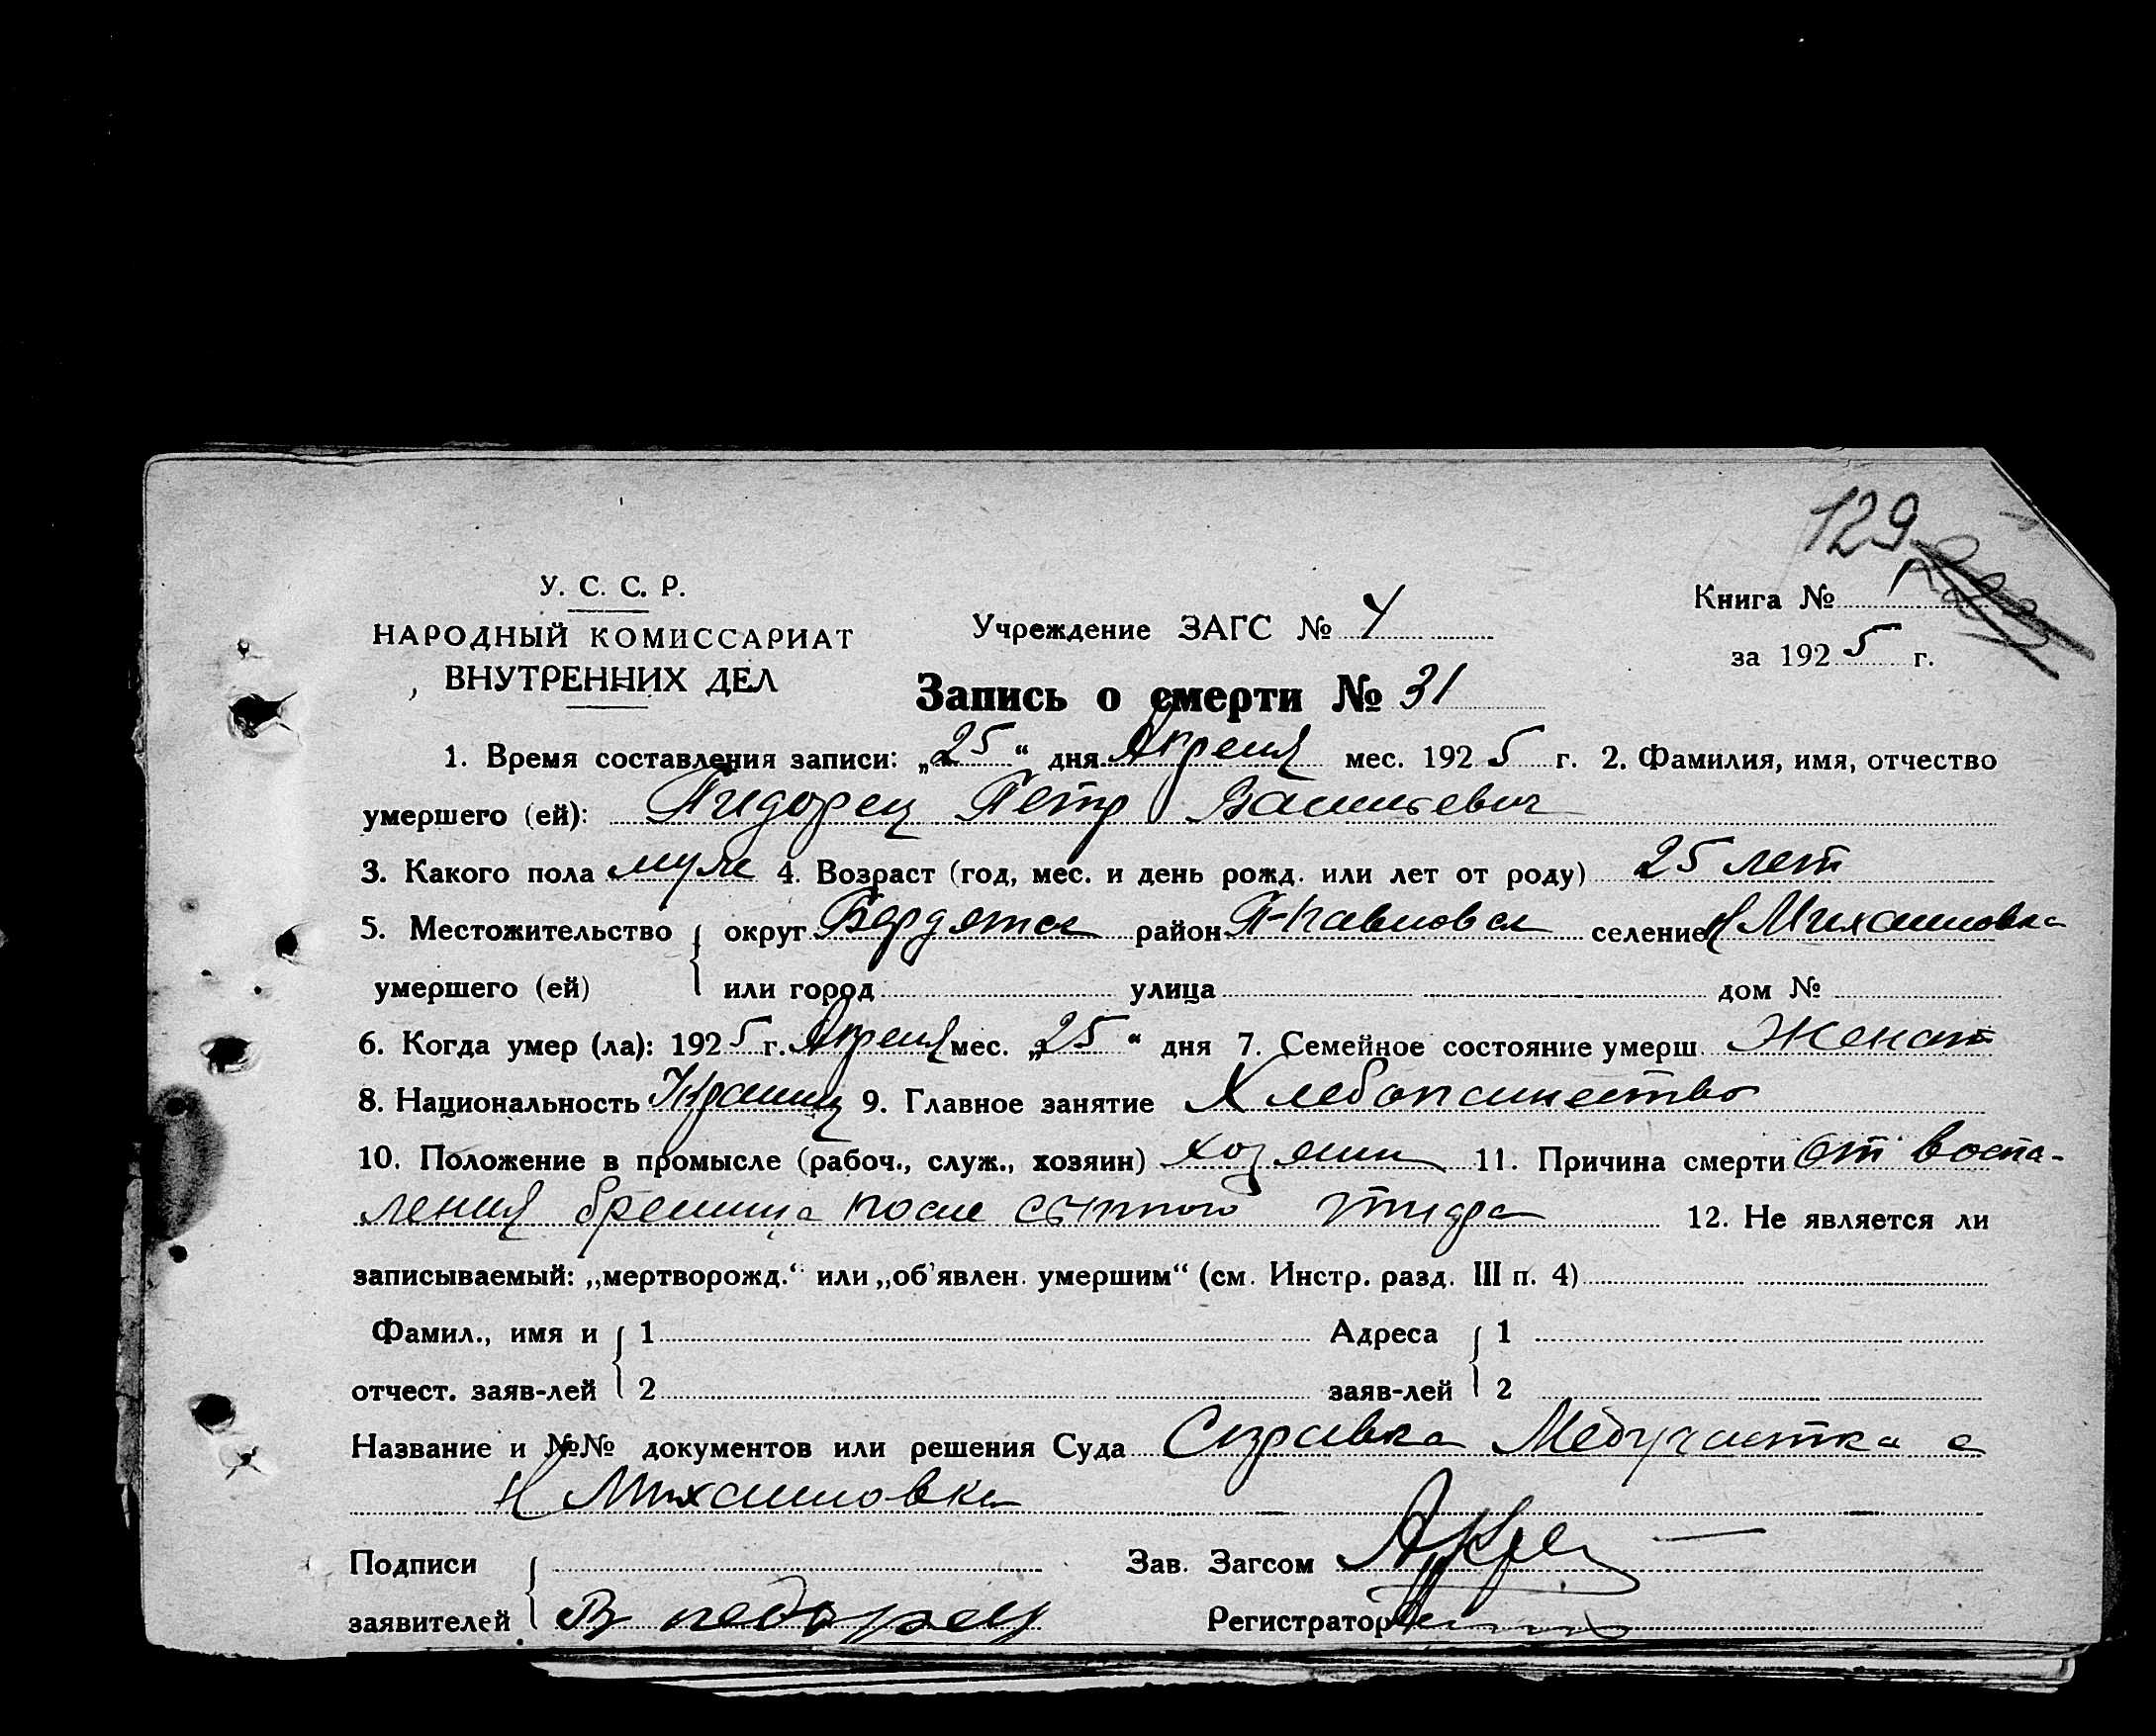 129
У. С. С. Р.
НАРОДНЫЙ КОМИССАРИАТ
ВНУТРЕННИХ ДЕЛ
Учреждение ЗАГС № 4
Книга № 1
за 1925 г.
Запись о смерти № 31
1. Время составления записи: „25“ дня Апреля мес. 1925 г. 2. Фамилия, имя, отчество
умершего (ей): Пидорец Петр Васильевич
3. Какого пола муж 4. Возраст (год, мес. и день рожд. или лет от роду) 25 лет
5. Местожительство округ Бердянск район П-Павловск селение Н Михайловка
умершего (ей) или город улица дом №
6. Когда умер (ла): 1925 г. Апреля мес. „25“ дня 7. Семейное состояние умерш. Женат
8. Национальность Украинец 9. Главное занятие Хлебопашество
10. Положение в промысле (рабоч., служ., хозяин) хозяин 11. Причина смерти от воспа-
ления брюшина после сыпного тифа 12. Не является ли
записываемый: „мертворожд.“ или „об'явлен. умершим“ (см. Инстр. разд. III п. 4)
Фамил., имя и 1 Адреса 1
отчест. заяв-лей 2 заяв-лей 2
Название и №№ документов или решения Суда Справка Медучастка с
Н Михайловка
Подписи Зав. Загсом
заявителей В педорец Регистратор